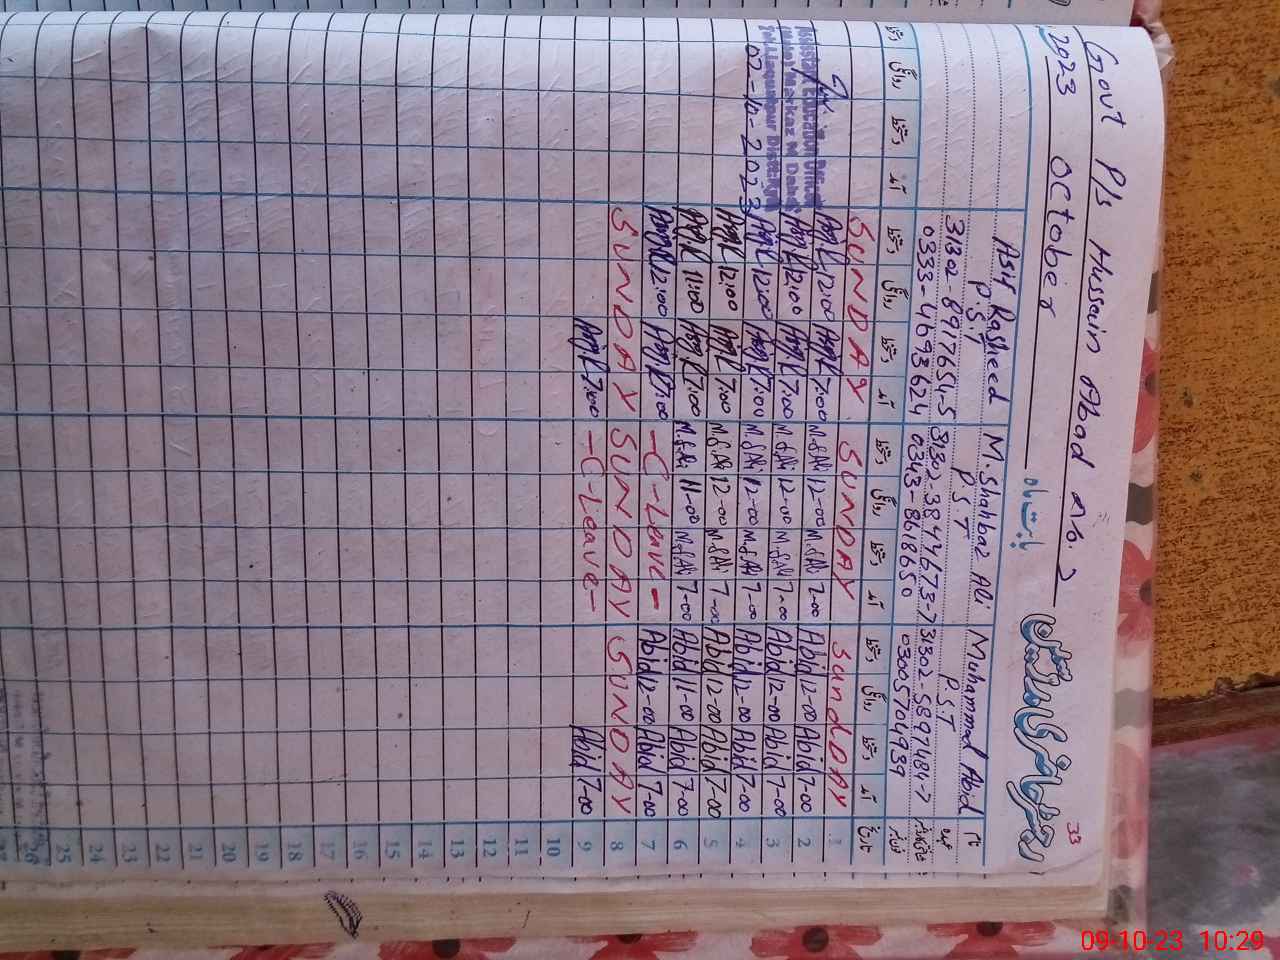 33
Govt P/s Hussain Abad no. 2
رجسٹر حاضری مدرسین
2023 October بابت ماہ
نام Muhammad Abid M. Shahbaz Ali Asif Rasheed
عہدہ P.S.T P.S.T P.S.T
شناختی کارڈ نمبر 31302-5897484-7 31302-3843673-7 31302-8917654-5
فون نمبر 03005704939 0343-8618650 0333-4693624
تاریخ آمد دستخط روانگی دستخط آمد دستخط روانگی دستخط آمد دستخط روانگی دستخط آمد دستخط روانگی دستخط
1 SundDAY SUNDAY SUNDAY
2 7-00 Abid 12-00 Abid 7-00 M.S.Ali 12-00 M.S.Ali 7:00 12:00
3 7-00 Abid 12-00 Abid 7-00 M.S.Ali 12-00 M.S.Ali 7:00 12:00
4 7-00 Abid 12-00 Abid 7-00 M.S.Ali 12-00 M.S.Ali 7:00 12:00
5 7-00 Abid 12-00 Abid 7-00 M.S.Ali 12-00 M.S.Ali 7:00 12:00
6 7-00 Abid 11-00 Abid 7-00 M.S.Ali 11-00 M.S.Ali 7:00 11:00
7 7-00 Abid 12-00 Abid -C-Leave- 7:00 12:00
8 SUNDAY SUNDAY SUNDAY
9 7-00 Abid -C-Leave- 7:00
10
11
12
13
14
15
16
17
18
19
20
21
22
23
24
25
26
Assistant Education Officer
Markaz
Liaquatpur Distt:
07-10-2023
09-10-23 10:29